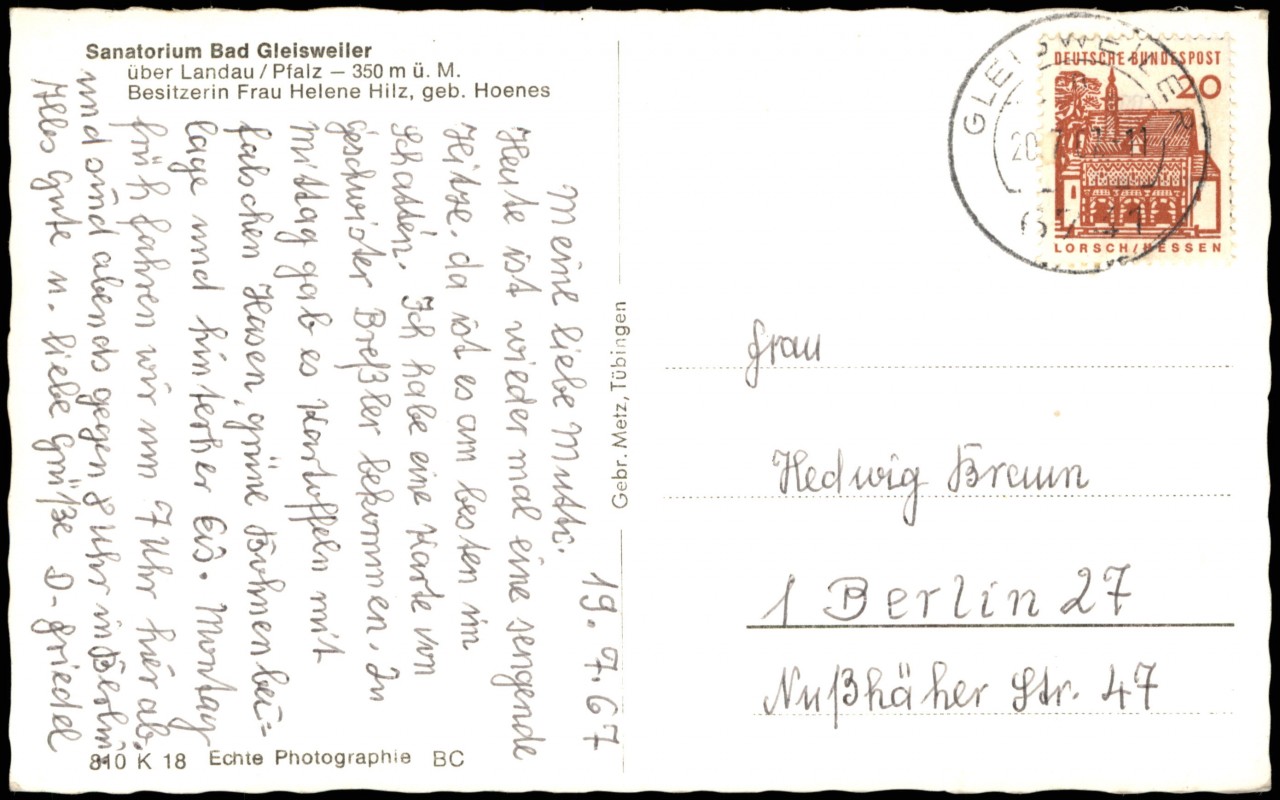 Sanatorium Bad Gleisweiler
über Landau / Pfalz – 350 m ü. M.
Besitzerin Frau Helene Hilz, geb. Hoenes
19.7.67
Meine liebe Mutti.
Heute ist wieder mal eine sengende
Hitze, da ist es am besten im
Schatten. Ich habe eine Karte von
geschwister Breßler bekommen. Zu
mittag gab es Kartoffeln mit
falschen Hasen, grüne Bohnen bei=
lage und hinterher Eis. Montag
früh fahren wir um 7 Uhr hier ab.
und sind abends gegen 8 Uhr in Berlin.
Alles gute u. liebe Grüße D-friedel
810 K 18 Echte Photographie BC
Gebr. Metz, Tübingen
GLEISWEILER
20.7.67-11
6741
DEUTSCHE BUNDESPOST
20
LORSCH/HESSEN
Frau
Hedwig Braun
1 Berlin 27
Nußhäher Str. 47